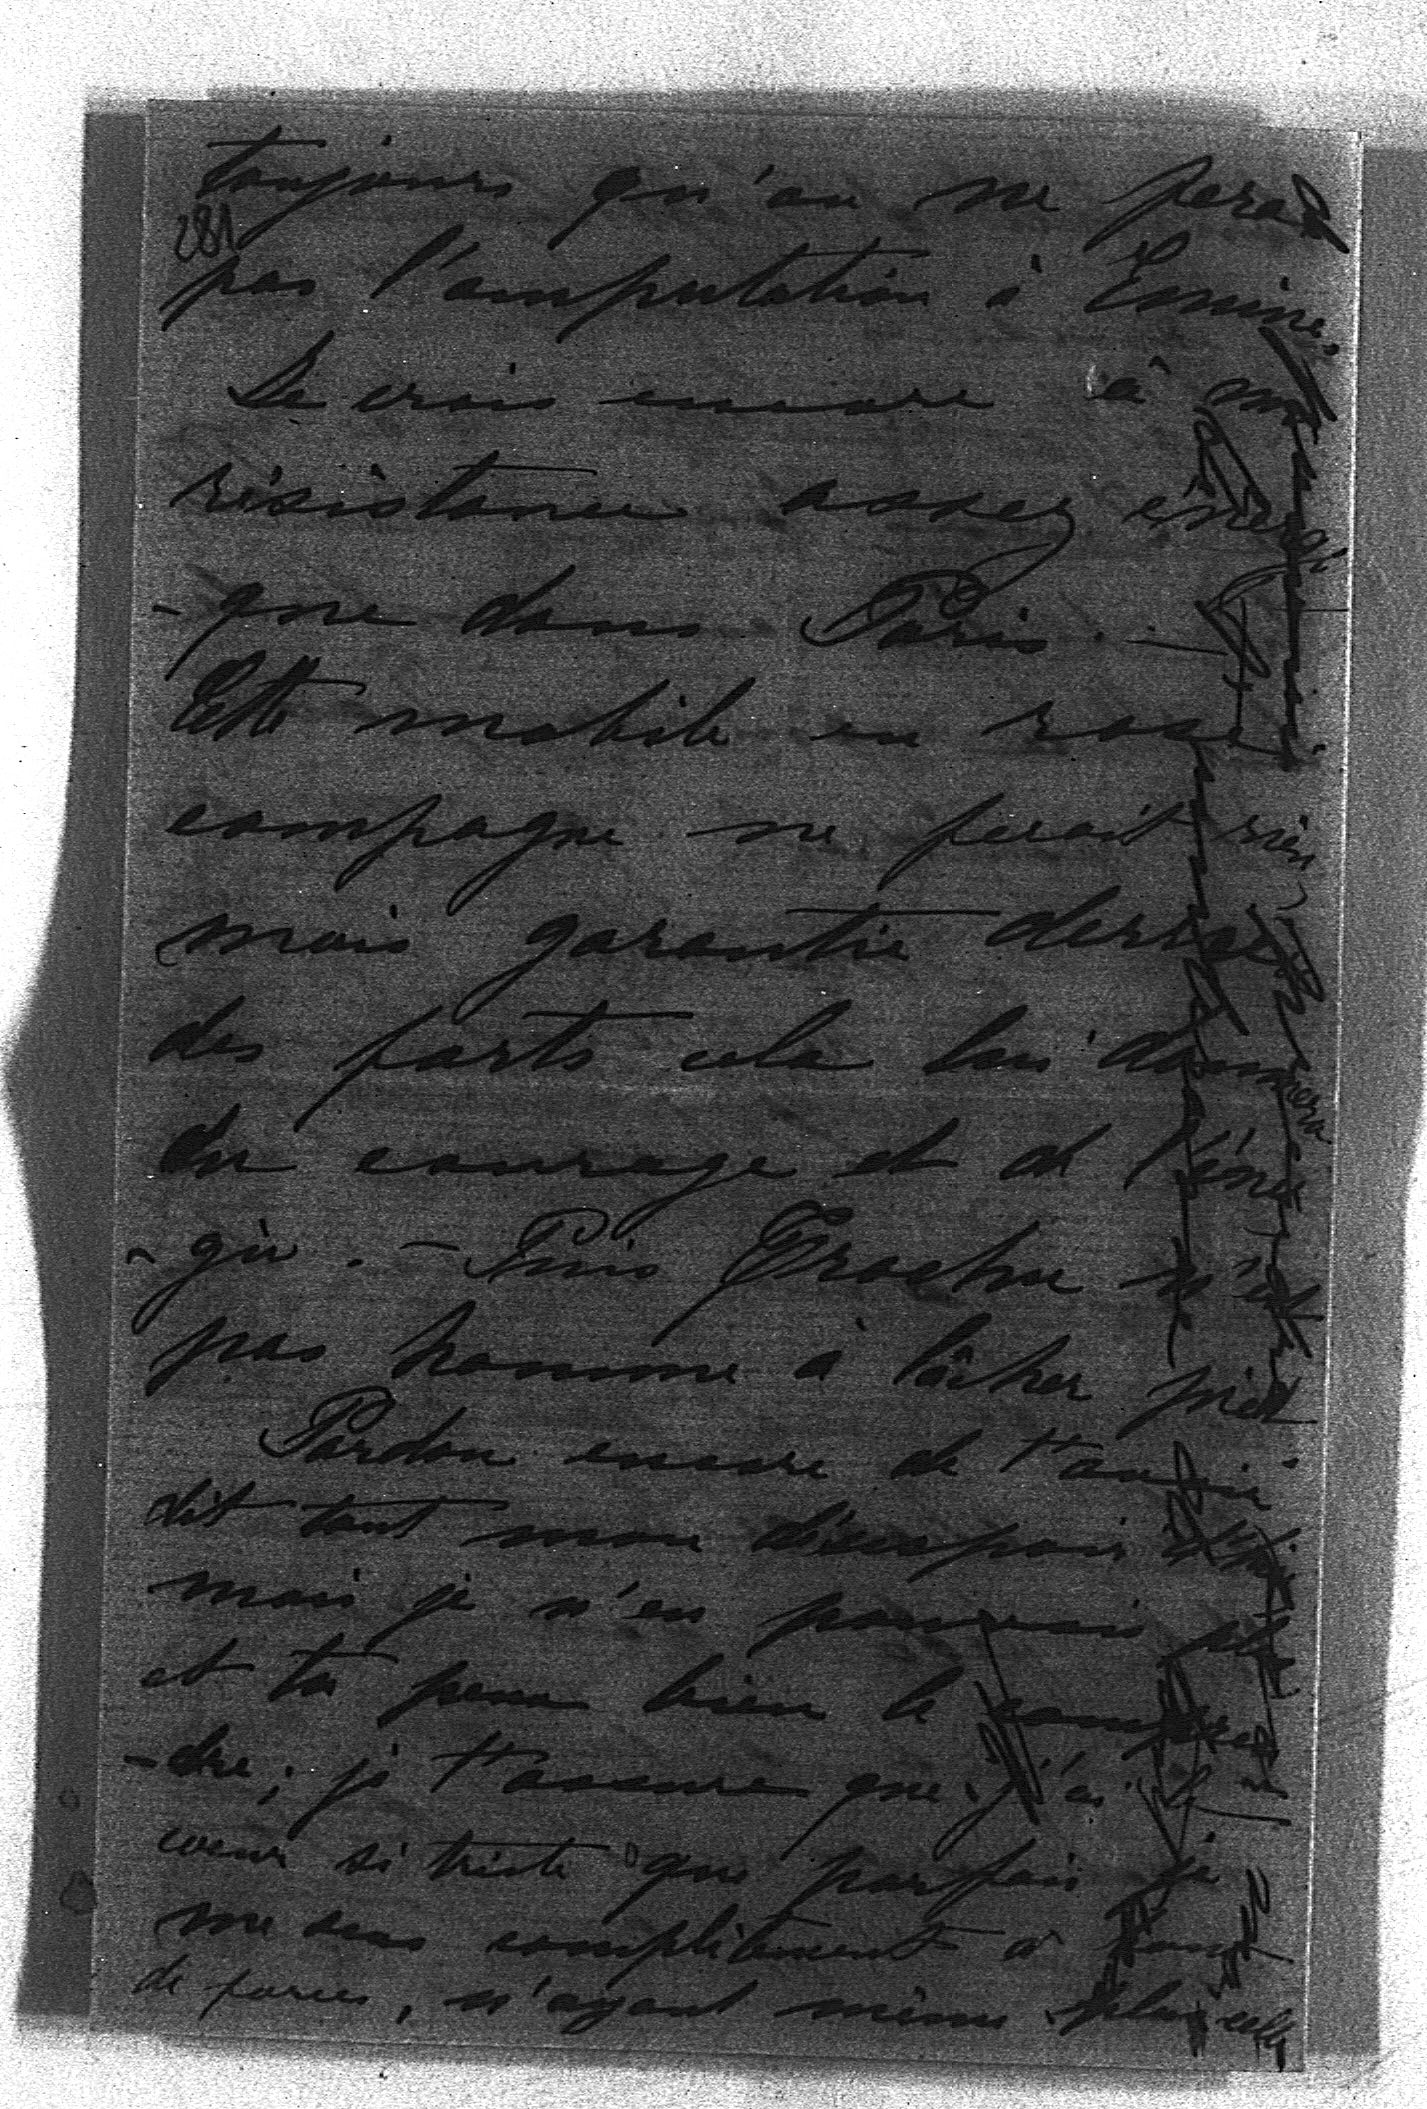 toujours qu'on ne fera
281
pas l'amputation à Emine.
Je crois encore à une
résistance assez énergi
-que dans Paris. —
Cette mobile en rase
campagne ne ferait rien
mais garantie derrière
des forts cela lui donnera
du courage et de l'éner
-gie. – Puis Trochu n'est
pas homme à lâcher pied
Pardon encore de t'avoir
dit tout mon désespoir
mais je n'en pouvais plus
et tu peux bien le compren
-dre; je t'assure que j'ai le
cœur si triste que parfois je
me sens complètement à bout
de forces, n'ayant même plus celle